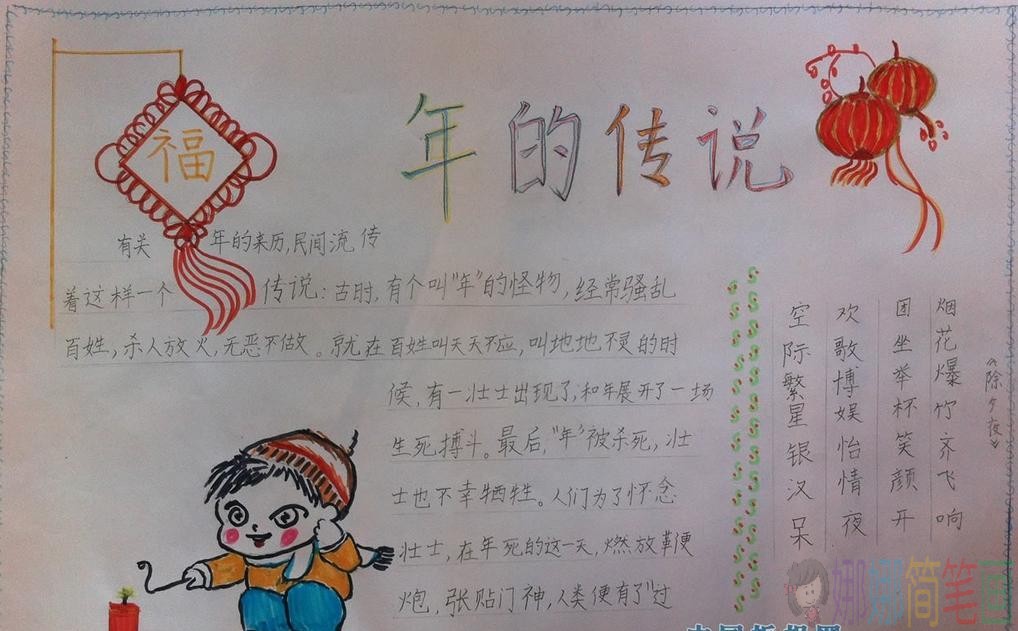 福
年的传说
有关年的来历,民间流传
着这样一个传说:古时,有个叫"年"的怪物,经常骚乱
百姓,杀人放火,无恶不做。就在百姓叫天天不应,叫地地不灵的时
候,有一壮士出现了,和年展开了一场
生死搏斗。最后,"年"被杀死,壮
士也不幸牺牲。人们为了怀念
壮士,在年死的这一天,燃放鞭
炮,张贴门神,人类便有了"过
《除夕夜》
烟花爆竹齐飞响
团坐举杯笑颜开
欢歌博娱怡情夜
空际繁星银汉呆
娜娜简笔画